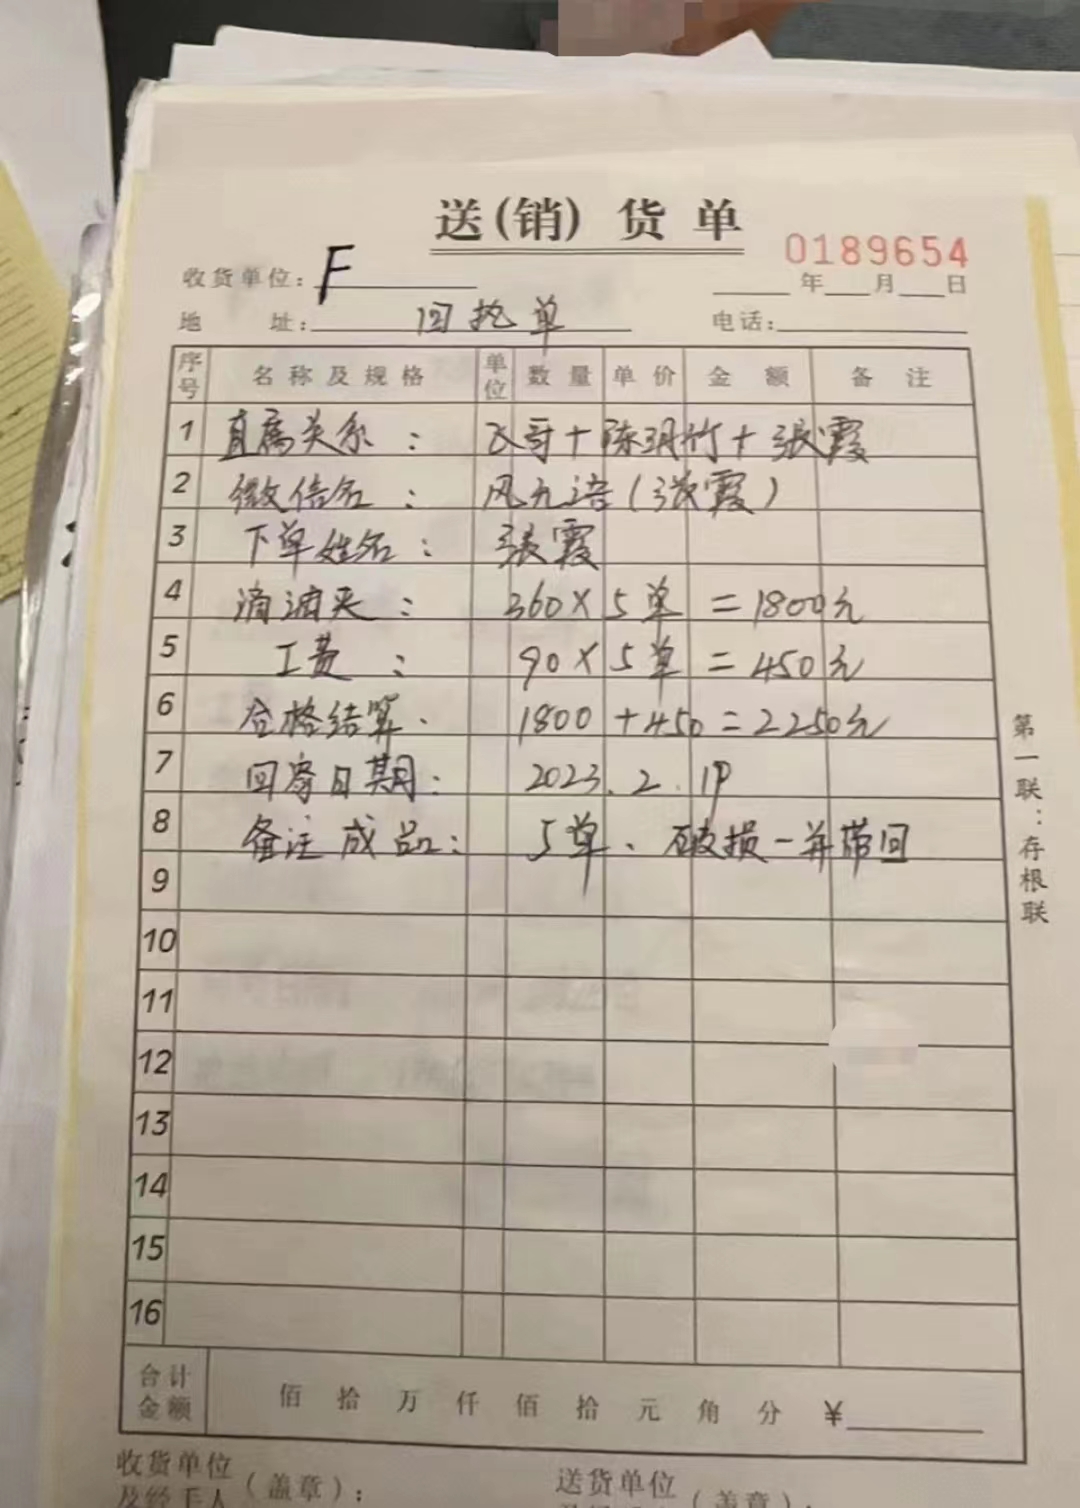 送(销)货单
0189654
收货单位: F 年 月 日
地 址: 回执单 电话:
序号 名称及规格 单位 数量 单价 金额 备注
1 直属关系: 飞哥+陈玥竹+张霞
2 微信名: 风允诺(张霞)
3 下单姓名: 张霞
4 滴滴夹: 360×5单=1800元
5 工费: 90×5单=450元
6 合格结算. 1800+450=2250元
7 回寄日期: 2023.2.19
8 备注成品: 5单、破损一并带回
9
10
11
12
13
14
15
16
合计金额 佰拾万仟佰拾元角分 ¥
第一联:存根联
收货单位 送货单位
及经手人(盖章): (盖章):